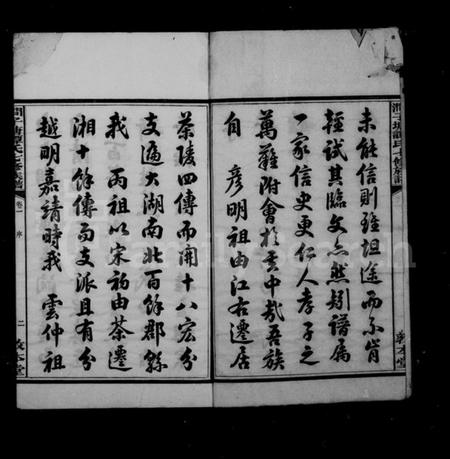 未能信則雖坦途而不肯
輕試其臨文亦然矧譜属
一家信史更仁人孝子之
萬難附會於其中哉吾族
自 彦明祖由江右遷居
敦本堂
茶陵四傳而開十八宏分
支遍大湖南北百餘郡縣
我 丙祖以宋初由茶遷
湘十餘傳而支派且有分
越明嘉靖時我 雲仲祖
卷一 序 二 敦本堂